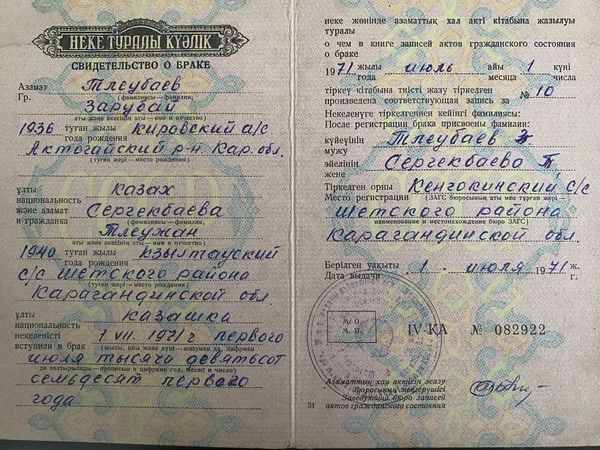 НЕКЕ ТУРАЛЫ КУӘЛІК
СВИДЕТЕЛЬСТВО О БРАКЕ
Азамат Тлеубаев
Гр. (фамилиясы — фамилия,
Зарубай
аты және әкесінің аты — имя и отчество)
1936 туған жылы Кировский а/с
года рождения
Актогайский р-н Кар.обл.
(туған жері — место рождения)
ұлты казах
национальность
және азамат Сергекбаева
и гражданка (фамилиясы — фамилия,
Тлеужан
аты және әкесінің аты — имя и отчество)
1940 туған жылы Кзылтауский
года рождения
с/с Шетского района
(туған жері — место рождения)
Карагандинской обл.
ұлты казашка
национальность
некелескені 1 VII. 1971 г первого
вступили в брак (жылы, айы және күні — жазумен және цифрмен
июля тысяча девятьсот
де толтырылады — прописью и цифрами год, месяц и число)
семьдесят первого
года
неке жөнінде азаматтық хал акті кітабына жазылуы
туралы
о чем в книге записей актов гражданского состояния
о браке
1971 жылы июль айы 1 күні
года месяца числа
тіркеу кітабына тиісті жазу тіркелген
произведена соответствующая запись за № 10
Некеленуге тіркелгеннен кейінгі фамилиясы:
После регистрации брака присвоены фамилии:
күйеуінің Тлеубаев З
мужу
әйелінің Сергекбаева Т
жене
Тіркелген орны Кенгокинский с/с
Место регистрации (ЗАГС бюросының аты мен тұрған жері —
Шетского района
наименование и местонахождение бюро ЗАГС)
Карагандинской обл.
Берілген уақыты 1. июля 1971 ж.
Дата выдачи г.
М/О.
М. П.
IV-КА № 082922
Азаматтық хал актісін жазу
бюросының меңгерушісі
Заведующий бюро записей
31 актов гражданского состояния